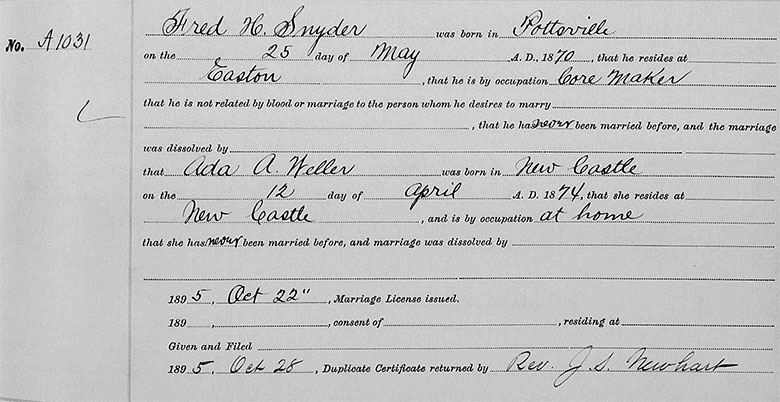 Fred H. Snyder was born in Pottsville
No. A1031
on the 25 day of May A. D., 1870, that he resides at
Easton, that he is by occupation Core Maker
that he is not related by blood or marriage to the person whom he desires to marry
, that he has never been married before, and the marriage
was dissolved by
that Ada A. Weller was born in New Castle
on the 12 day of April A. D. 1874, that she resides at
New Castle, and is by occupation at home
that she has never been married before, and marriage was dissolved by
1895, Oct 22", Marriage License issued.
189 , , consent of , residing at
Given and Filed
1895, Oct 28, Duplicate Certificate returned by Rev. J. S. Newhart